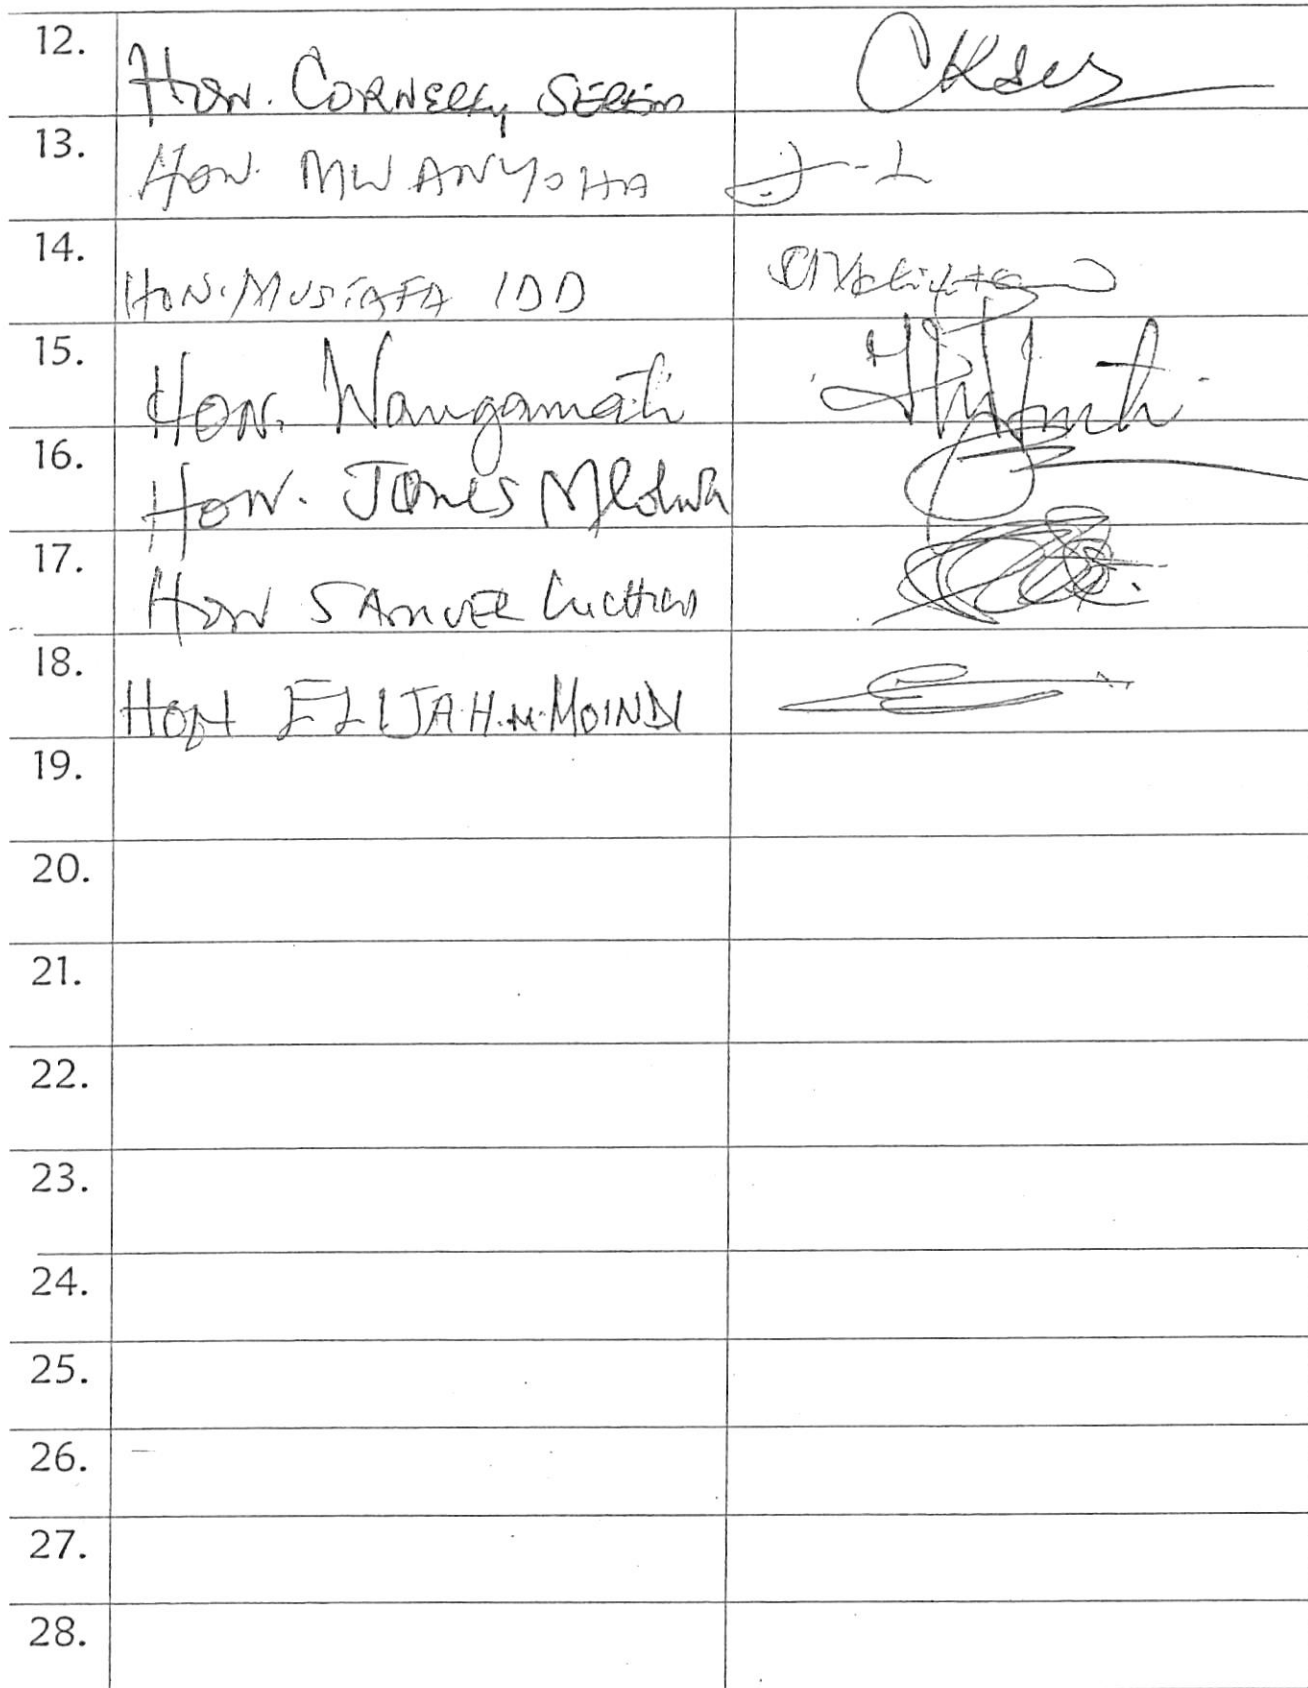 12. Hon. Cornelly Serem
13. Hon. MWANYOHA
14. HON. MUSTAFA IDD
15. Hon. Wangamati
16. Hon. Jones Mlolwa
17. Hon SAMUEL
18. HON ELIJAH.M.MOINDI
19.
20.
21.
22.
23.
24.
25.
26.
27.
28.